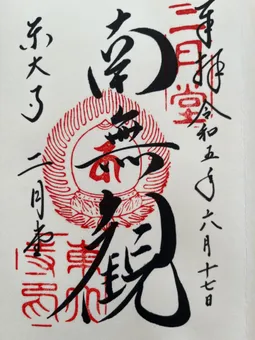 奉拝 令和五年六月十七日
二月堂
南無観
東大寺 二月堂